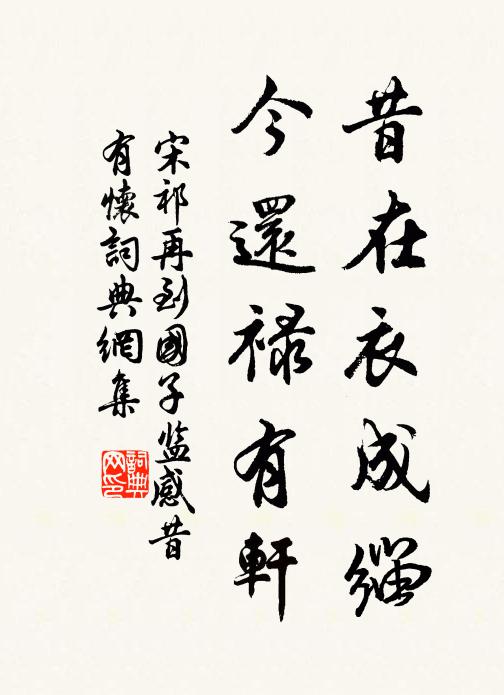 昔在衣成緇
今還禄有軒
宋祁再到國子监感昔
有懷詞典網集
詞典
网印